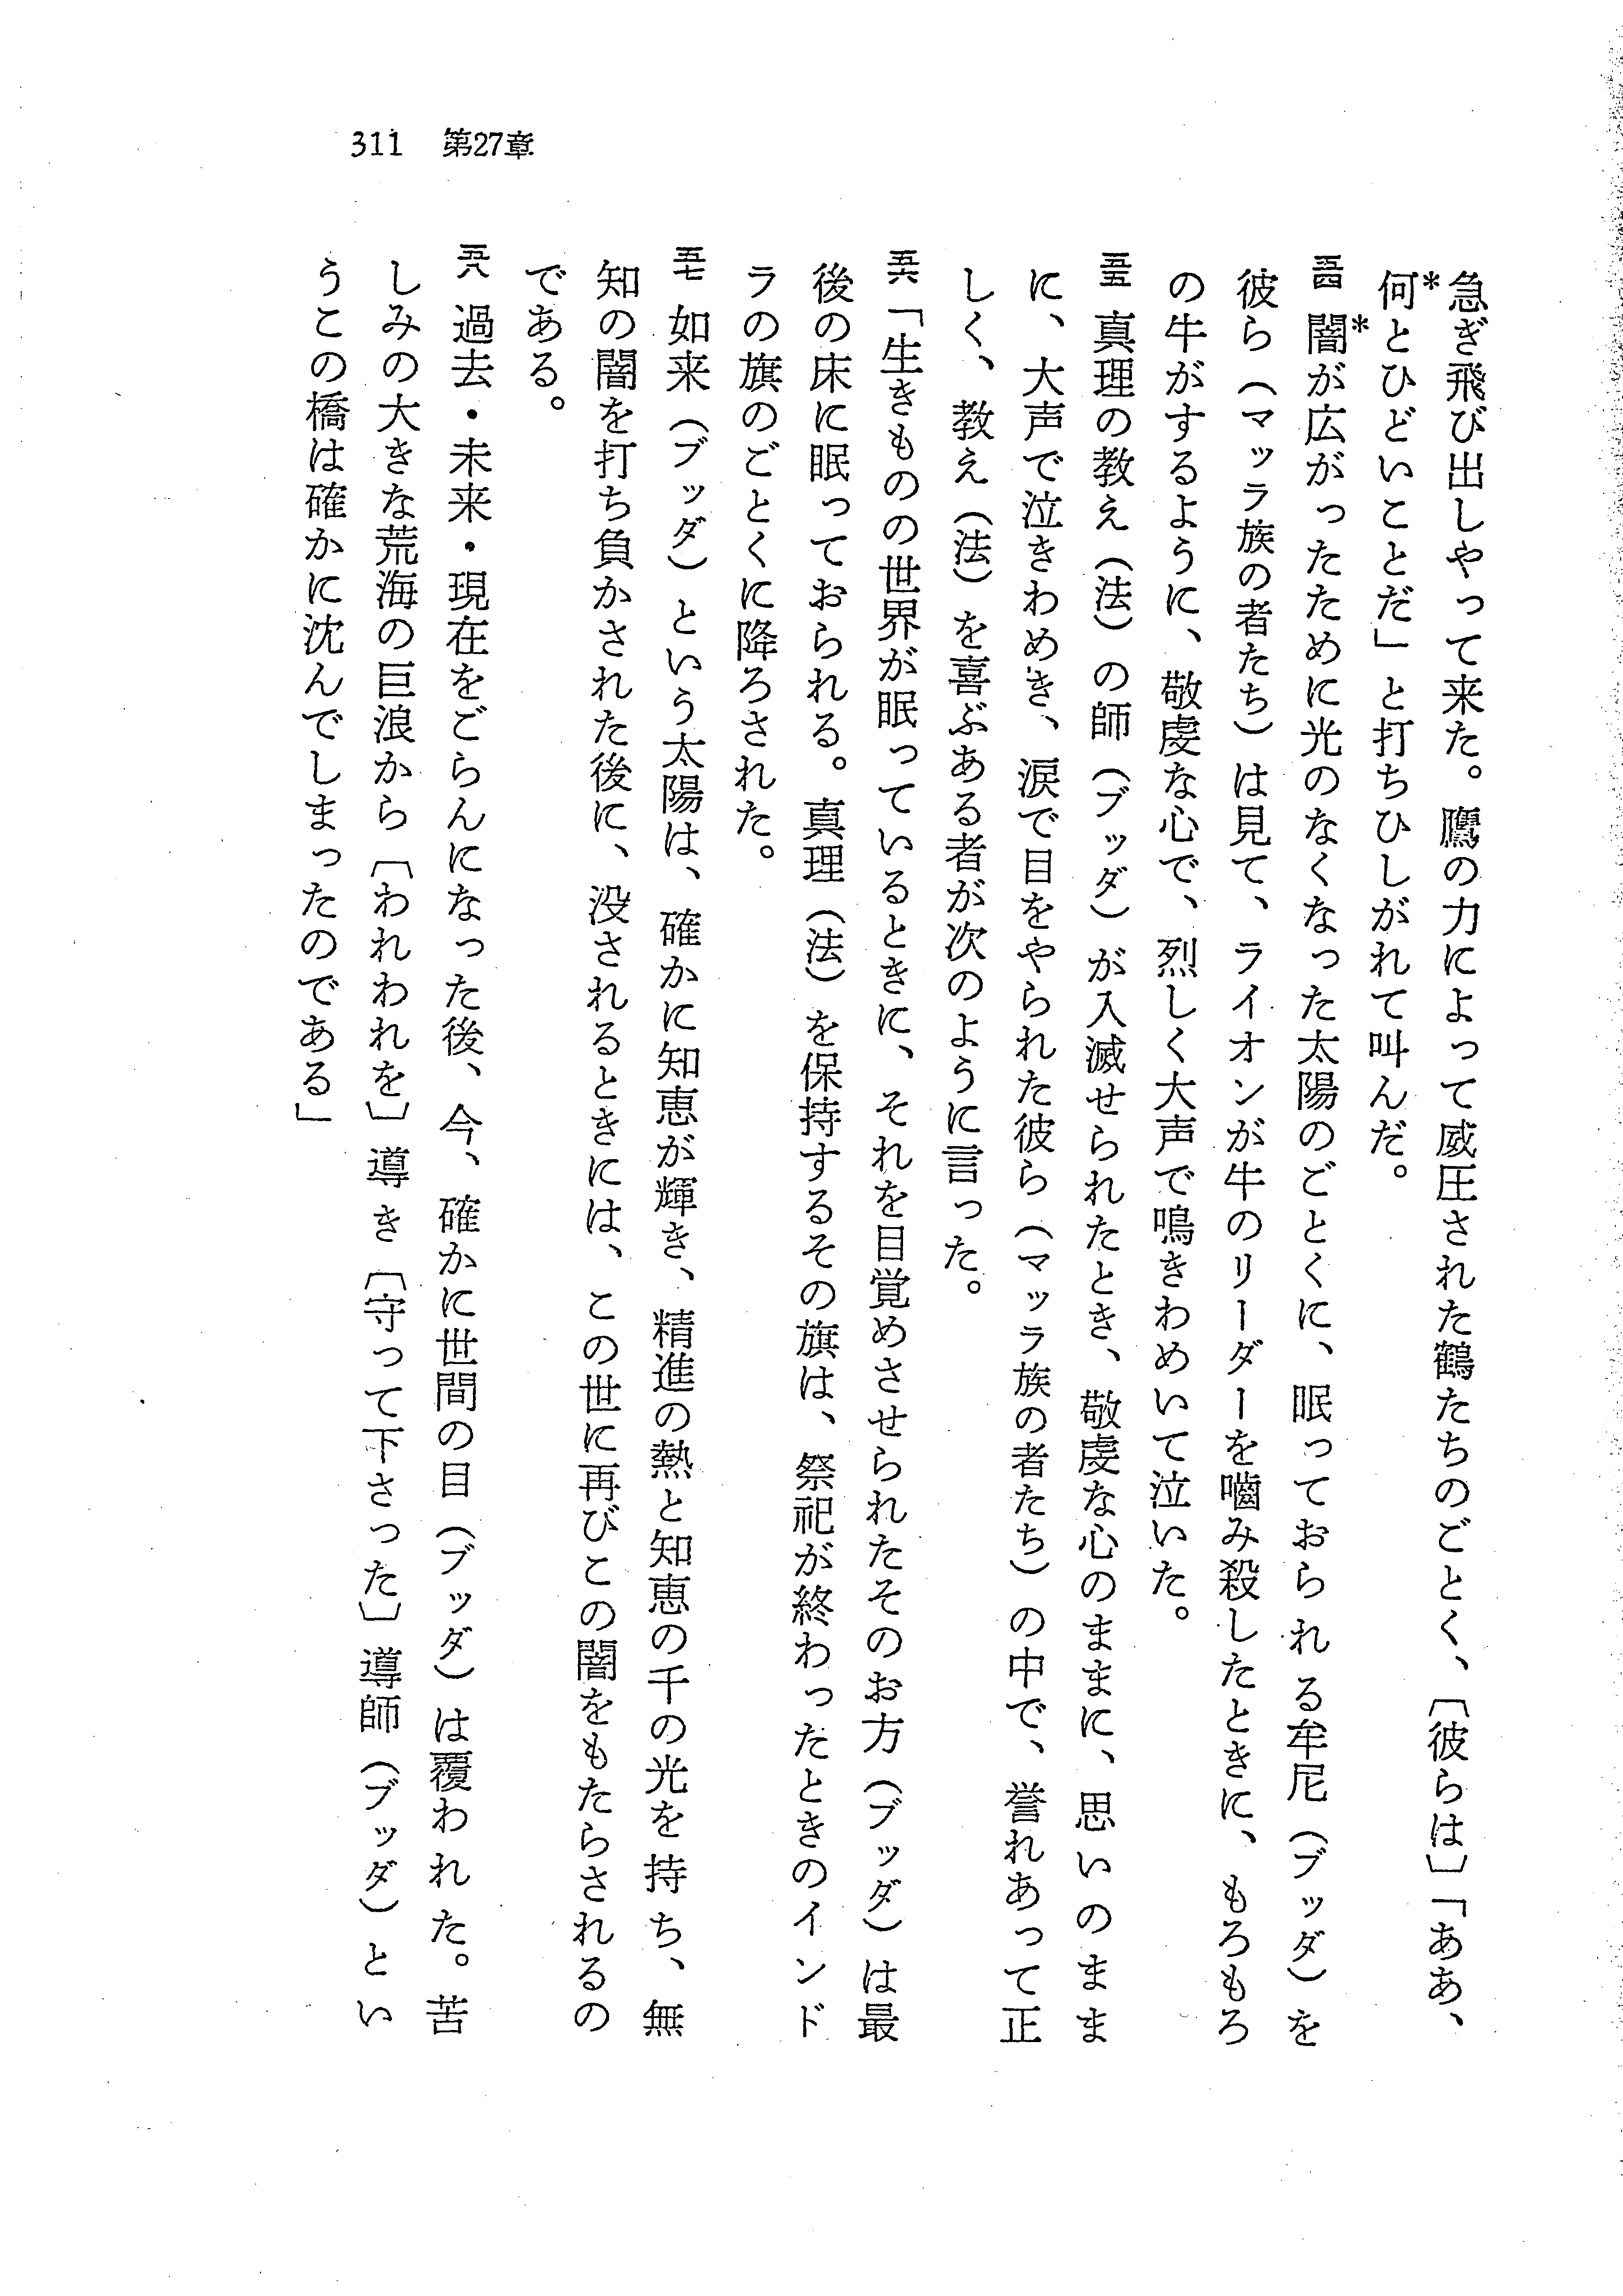 311 第27章
急ぎ飛び出しやって来た。鷹の力によって威圧された鶴たちのごとく、〔彼らは〕「ああ、
*何とひどいことだ」と打ちひしがれて叫んだ。
五四 *闇が広がったために光のなくなった太陽のごとくに、眠っておられる牟尼（ブッダ）を
彼ら（マッラ族の者たち）は見て、ライオンが牛のリーダーを嚙み殺したときに、もろもろ
の牛がするように、敬虔な心で、烈しく大声で鳴きわめいて泣いた。
五五 真理の教え（法）の師（ブッダ）が入滅せられたとき、敬虔な心のままに、思いのまま
に、大声で泣きわめき、涙で目をやられた彼ら（マッラ族の者たち）の中で、誉れあって正
しく、教え（法）を喜ぶある者が次のように言った。
五六 「生きものの世界が眠っているときに、それを目覚めさせられたそのお方（ブッダ）は最
後の床に眠っておられる。真理（法）を保持するその旗は、祭祀が終わったときのインド
ラの旗のごとくに降ろされた。
五七 如来（ブッダ）という太陽は、確かに知恵が輝き、精進の熱と知恵の千の光を持ち、無
知の闇を打ち負かされた後に、没されるときには、この世に再びこの闇をもたらされるの
である。
五八 過去・未来・現在をごらんになった後、今、確かに世間の目（ブッダ）は覆われた。苦
しみの大きな荒海の巨浪から〔われわれを〕導き〔守って下さった〕導師（ブッダ）とい
うこの橋は確かに沈んでしまったのである」